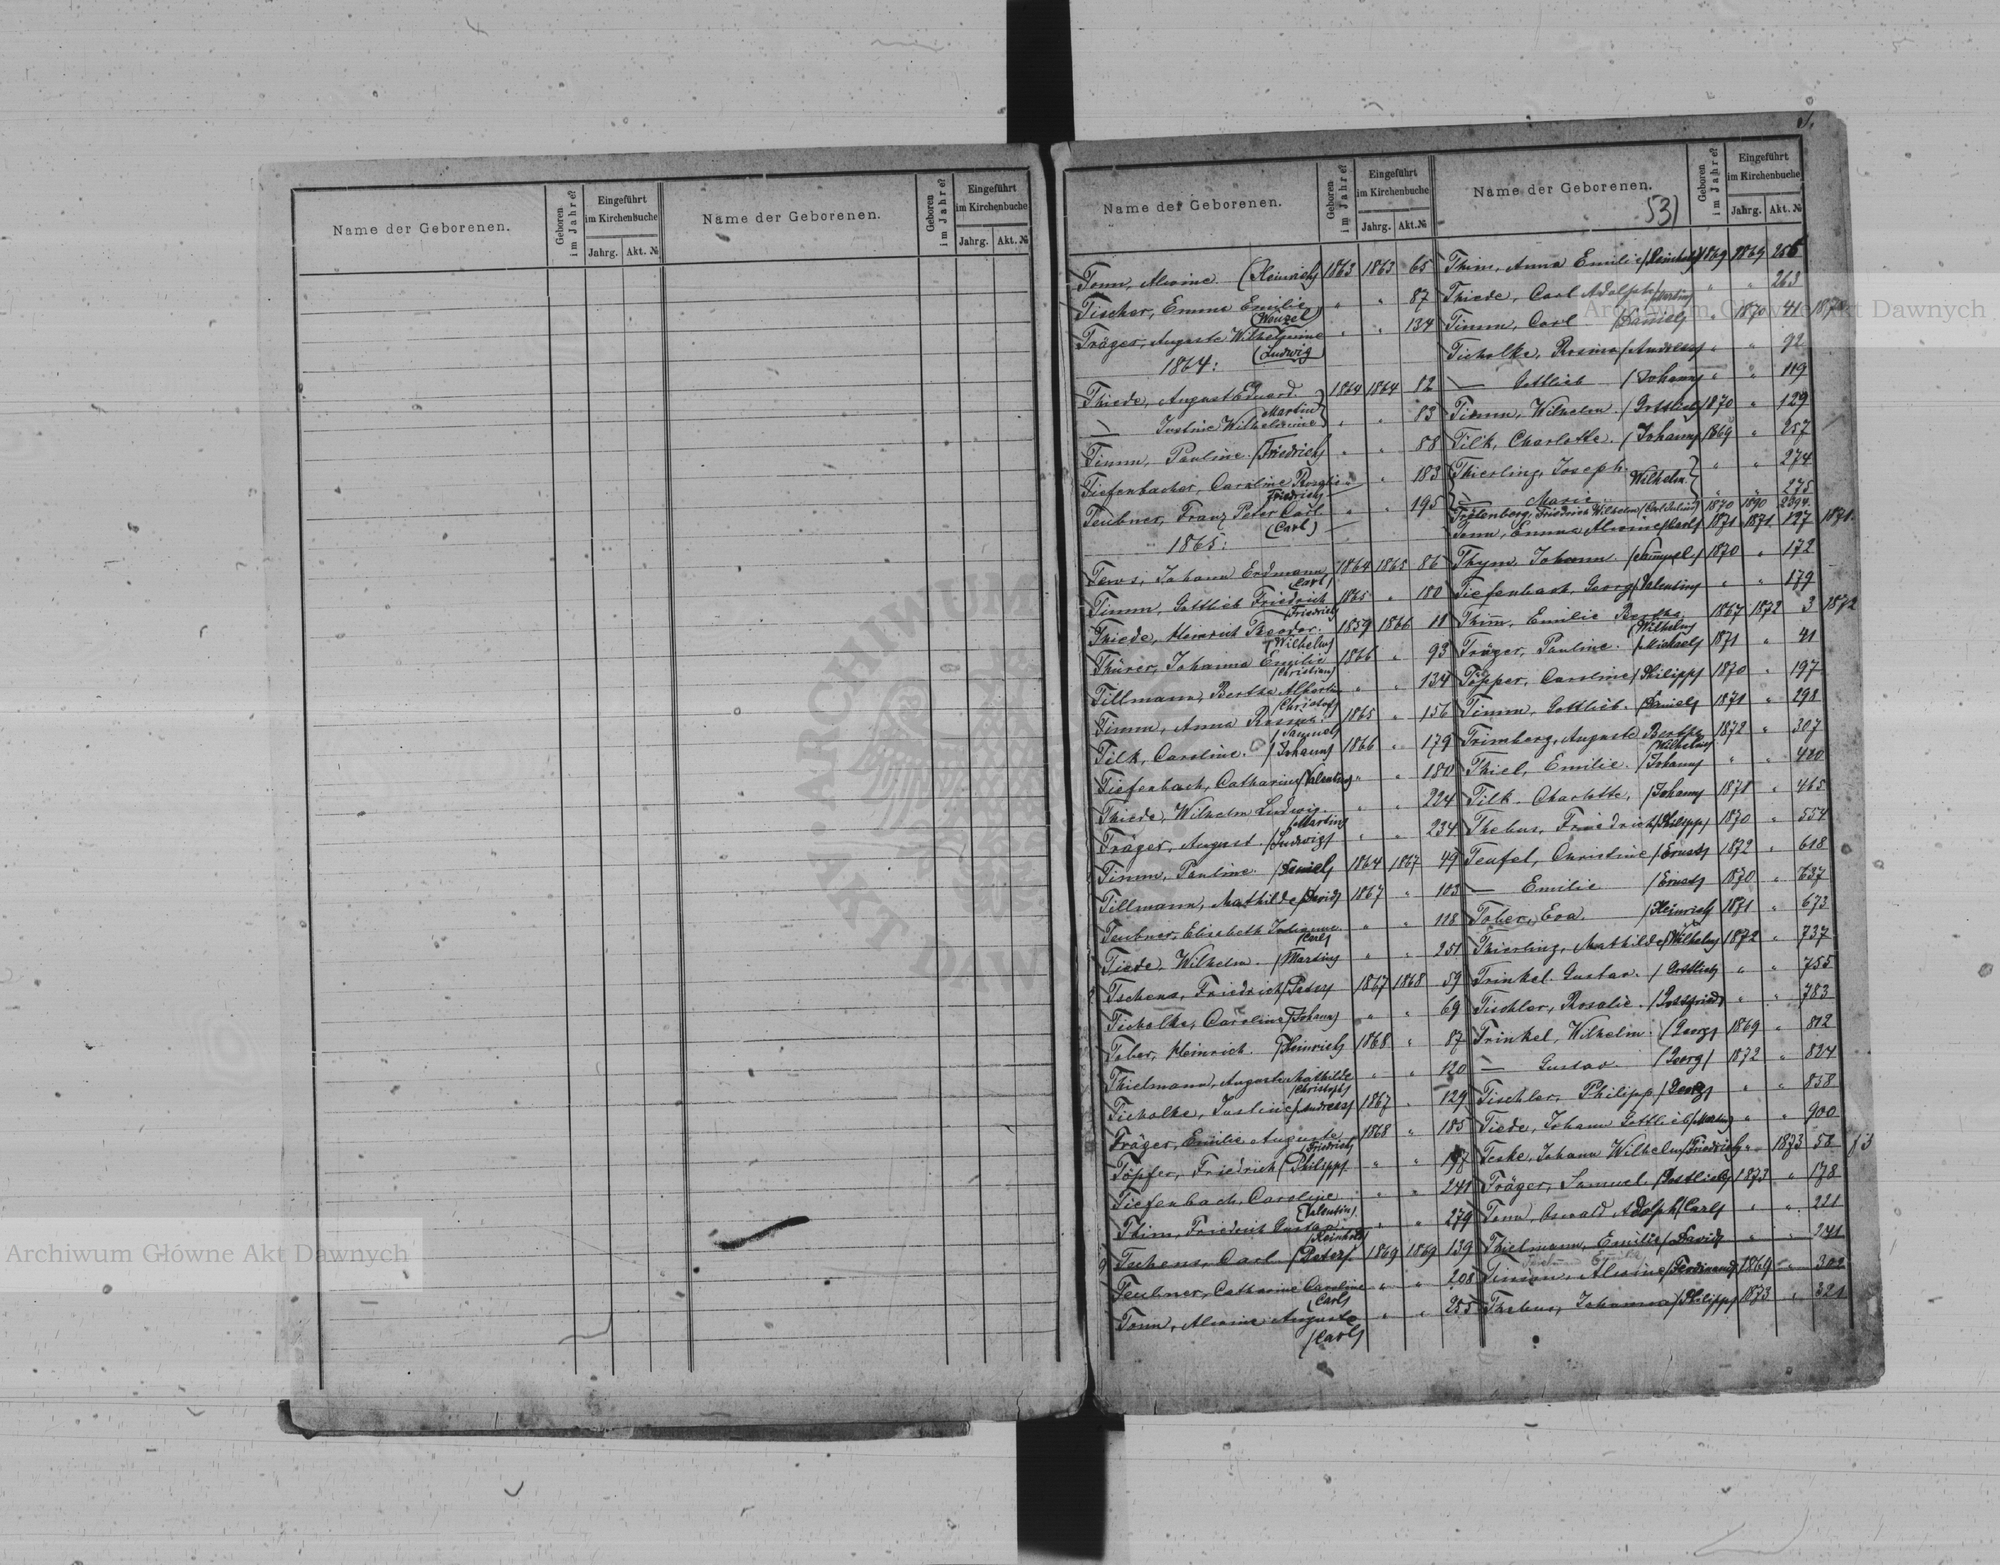 Name der Geborenen.
Geboren im Jahre?
Eingeführt im Kirchenbuche
Jahrg.
Akt. №
Name der Geborenen.
Geboren im Jahre?
Eingeführt im Kirchenbuche
Jahrg.
Akt. №
Name der Geborenen.
Geboren im Jahre?
Eingeführt im Kirchenbuche
Jahrg.
Akt. №
Tonn, Alwine (Heinrich) 1863 1863 65
Tischer, Emma Emilie (Wenzel) " " 87
Träger, Auguste Wilhelmine (Ludwig) " " 134
1864:
Thiede, August Eduard 1864 1864 82
— Justine Wilhelmine (Martin) " " 83
Timm, Pauline (Friedrich) " " 88
Tiefenbacher, Caroline Rosalie (Friedrich) " " 183
Teubner, Franz Peter Carl (Carl) " " 195
1865:
Tews, Johann Erdmann (Carl) 1864 1865 86
Timm, Gottlieb Friedrich (Friedrich) 1865 " 180
Thiede, Heinrich Theodor (Wilhelm) 1859 1866 11
Thürer, Johanna Emilie (Christian) 1866 " 93
Tillmann, Bertha Albertine (Christof) " " 134
Timm, Anna Rosina (Samuel) 1865 " 156
Tilk, Caroline (Johann) 1866 " 179
Tiefenbach, Catharina (Valentin) " " 180
Thiede, Wilhelm Ludwig (Martin) " " 224
Träger, August (Ludwig) " " 234
Timm, Pauline (Daniel) 1864 1867 49
Tillmann, Mathilde (David) 1867 " 103
Teubner, Elisabeth (Carl) " " 118
Tiede, Wilhelm (Martin) " " 251
Tschens, Friedrich (Peter) 1867 1868 59
Ticholke, Caroline (Johann) " " 69
Tober, Heinrich (Heinrich) 1868 " 87
Thielmann, Auguste Mathilde (Christoph) " " 120
Ticholke, Justine (Andreas) 1867 " 129
Träger, Emilie Auguste (Friedrich) 1868 " 185
Töpfer, Friedrich (Philipp) " "
Tiefenbach, Caroline (Valentin) " " 241
Thim, Friedrich Gustav (Reinhold) " " 279
Tschens, Carl (Peter) 1869 1869 139
Teubner, Catharine Caroline (Carl) " " 208
Tonn, Alwine Auguste (Carl) " " 255
Name der Geborenen.
531
Geboren im Jahre?
Eingeführt im Kirchenbuche
Jahrg.
Akt. №
Thim, Anna Emilie (Reinhold) 1869 1869 256
Thiede, Carl Adolph (Martin) " " 263
Timm, Carl (Daniel) " 1870 41 1870
Ticholke, Rosina (Andreas) " " 92
— Gottlieb (Johann) " " 119
Timm, Wilhelm (Gottlieb) 1870 " 129
Tilk, Charlotte (Johann) 1869 " 257
Thierling, Joseph " " 274
— Marie (Wilhelm) " " 275
Friedrich Wilhelm (Carl Julius) 1870 1870
Tonn, Emma Alwine (Carl) 1871 1871 127 1871
Thym, Johann (Samuel) 1870 " 172
Tiefenbach, Georg (Valentin) " " 179
Thim, Emilie Bertha (Wilhelm) 1867 1872 3 1872
Träger, Pauline (Michael) 1871 " 41
Töpper, Caroline (Philipp) 1870 " 197
Timm, Gottlieb (Daniel) 1871 " 298
Trimberg, Auguste Bertha (Wilhelm) 1872 " 307
Thiel, Emilie (Johann) " " 400
Tilk, Charlotte (Johann) 1871 " 465
Thebus, Friedrich (Philipp) 1870 " 554
Teufel, Christine (Ernst) 1872 " 618
— Emilie (Ernst) 1870 " 637
Tober, Eva (Heinrich) 1871 " 673
Thierling, Mathilde (Wilhelm) 1872 " 737
Trinkel, Gustav (Gottlieb) " " 755
Tischler, Rosalie (Gottfried) " " 783
Trinkel, Wilhelm (Georg) 1869 " 812
— Gustav (Georg) 1872 " 824
Tischler, Philipp (Georg) " " 858
Tiede, Johann Gottlieb (Martin) " " 900
Teske, Johann Wilhelm (Friedrich) " 1873 58 73
Träger, Samuel (Gottlieb) 1873 " 178
Tonn, Oswald Adolph (Carl) " " 221
Thielmann, Emilie (David) " " 241
Timm, Alwine (Ferdinand) 1869 " 302
Thebus, Johanna (Philipp) 1873 " 321
Archiwum Główne Akt Dawnych
Archiwum Główne Akt Dawnych